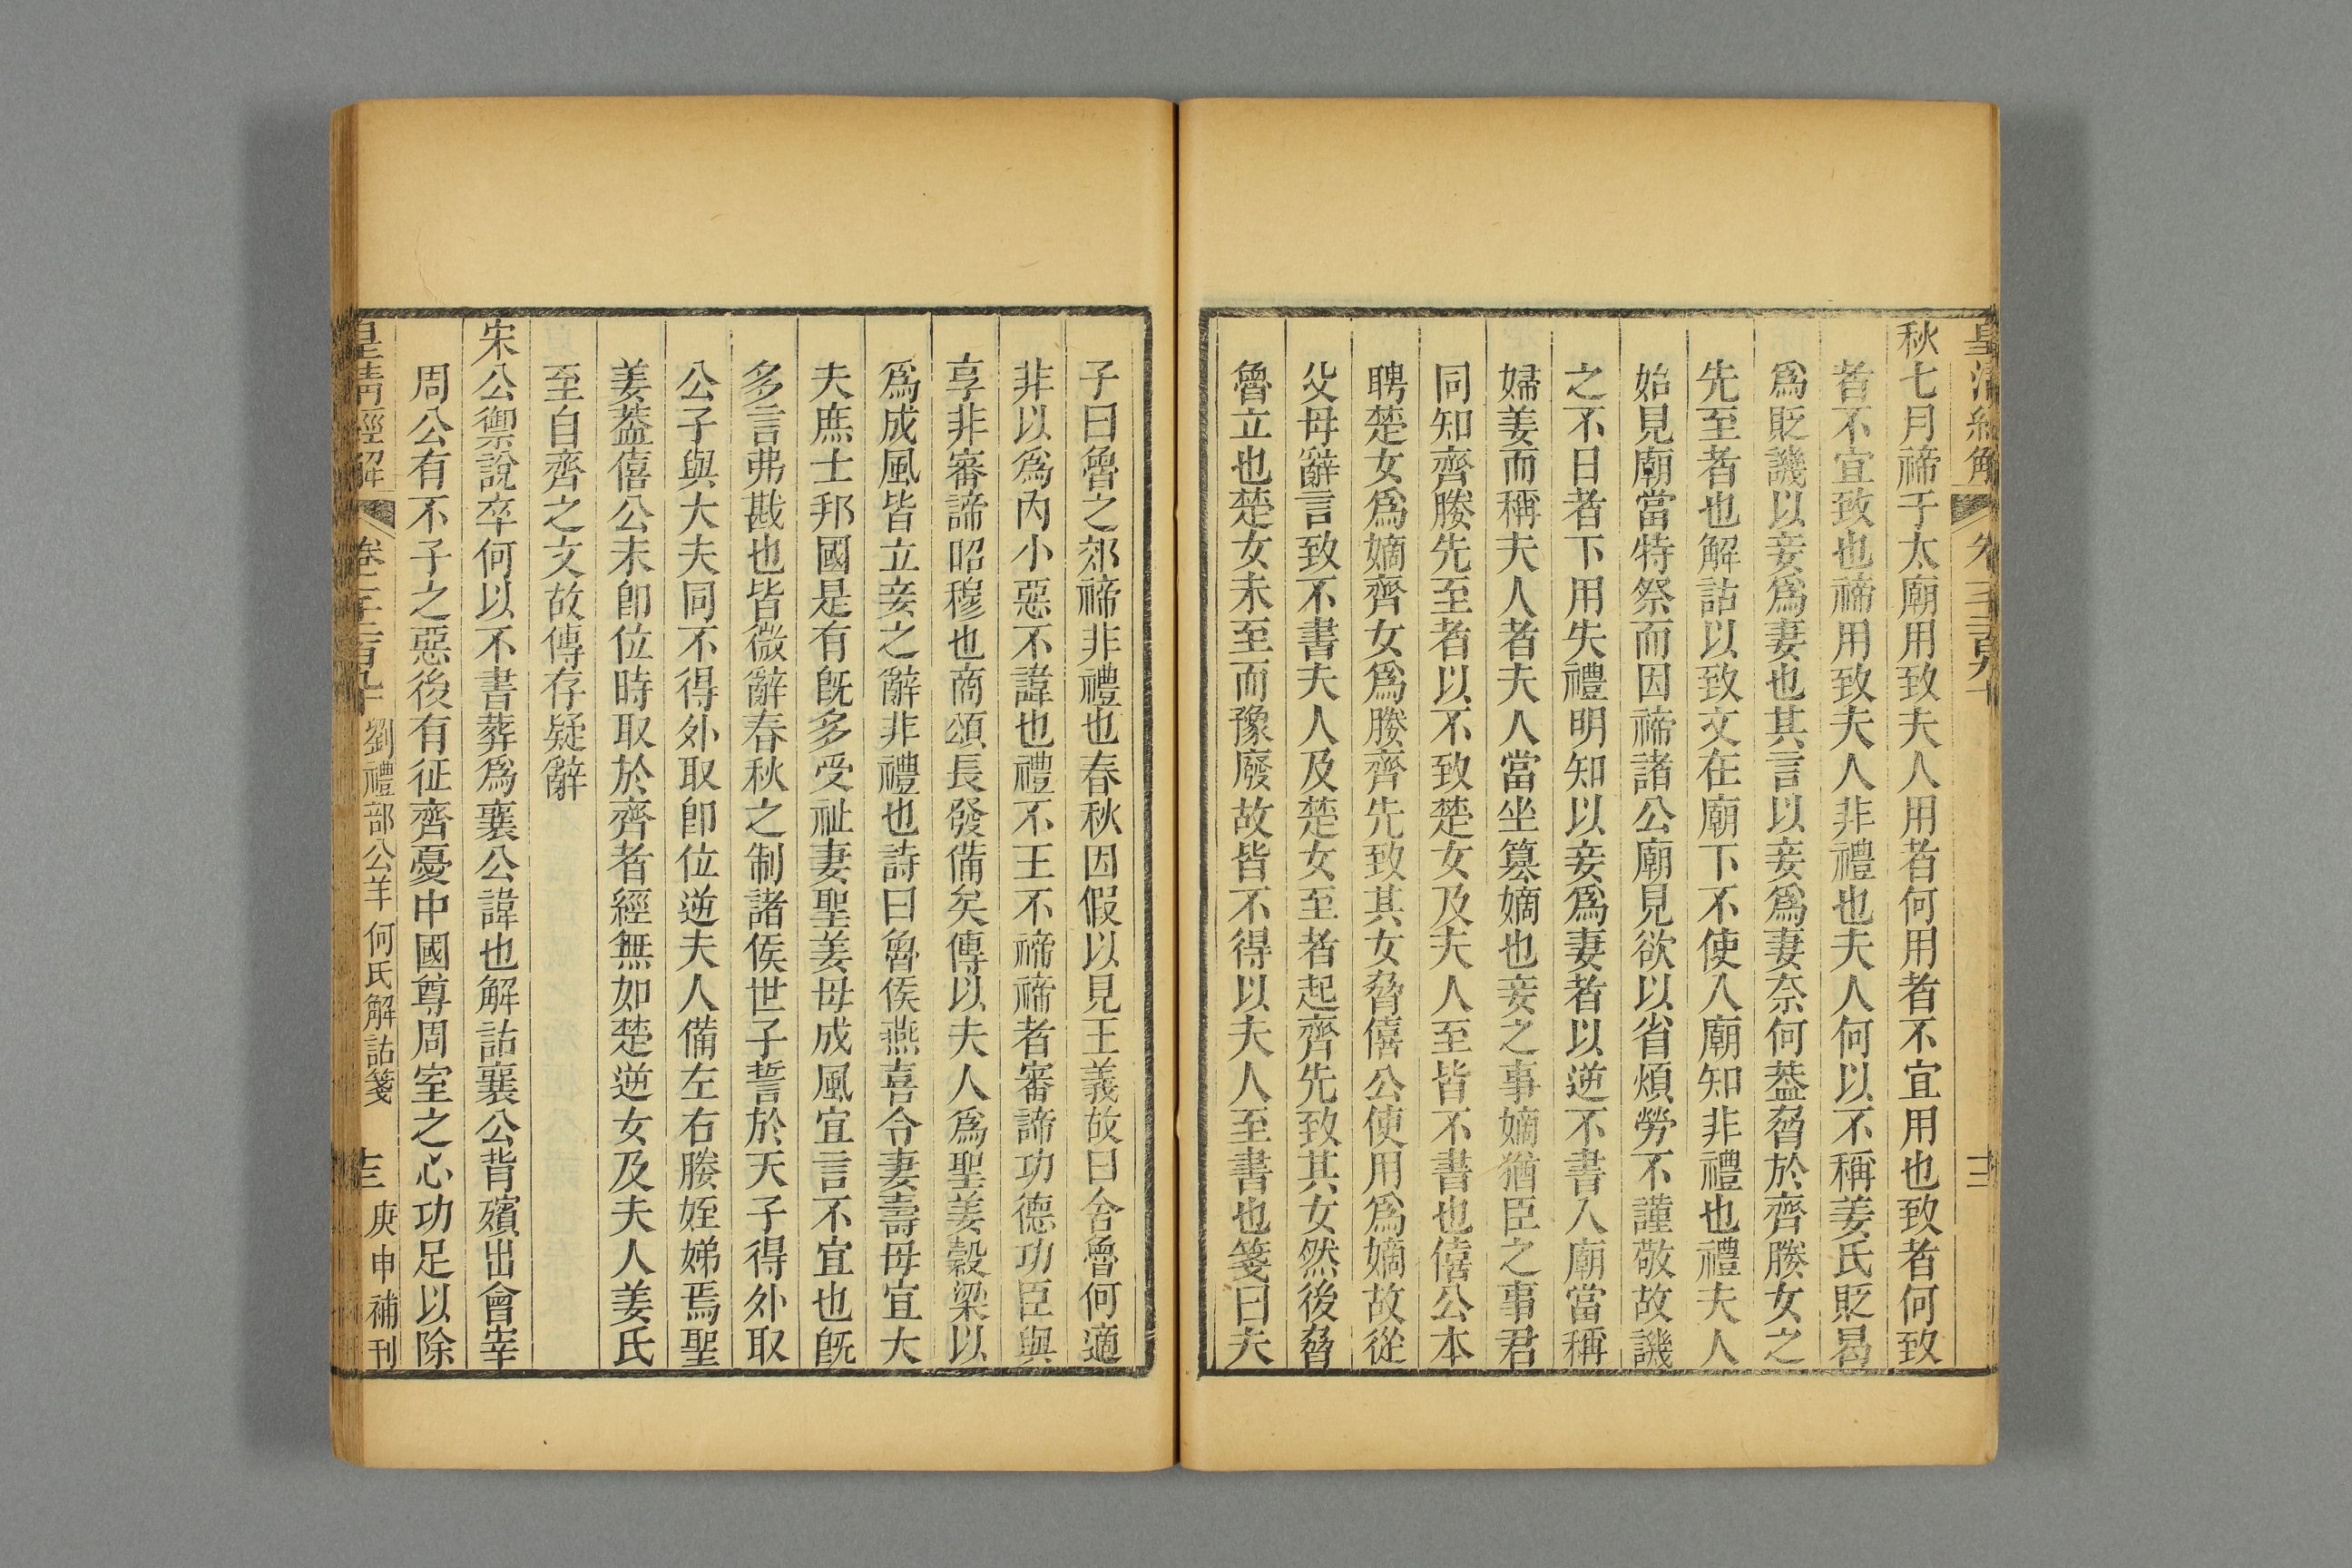 皇清經解 卷一千二百九十 十三
秋七月禘于太廟用致夫人用者何用者不宜用也致者何致
者不宜致也禘用致夫人非禮也夫人何以不稱姜氏貶曷
爲貶譏以妾爲妻也其言以妾爲妻奈何葢脅於齊媵女之
先至者也解詁以致文在廟下不使入廟知非禮也禮夫人
始見廟當特祭而因禘諸公廟見欲以省煩勞不謹敬故譏
之不日者下用失禮明知以妾爲妻者以逆不書入廟當稱
婦姜而稱夫人者夫人當坐篡嫡也妾之事嫡猶臣之事君
同知齊媵先至者以不致楚女及夫人至皆不書也僖公本
聘楚女爲嫡齊女爲媵齊先致其女脅僖公使用爲嫡故從
父母辭言致不書夫人及楚女至者起齊先致其女然後脅
魯立也楚女未至而豫廢故皆不得以夫人至書也箋曰夫
子曰魯之郊禘非禮也春秋因假以見王義故曰舍魯何適
非以爲內小惡不諱也禮不王不禘禘者審諦功德功臣與
享非審諦昭穆也商頌長發備矣傳以夫人爲聖姜穀梁以
爲成風皆立妾之辭非禮也詩曰魯侯燕喜令妻壽母宜大
夫庶士邦國是有旣多受祉妻聖姜母成風宜言不宜也旣
多言弗戡也皆微辭春秋之制諸侯世子誓於天子得外取
公子與大夫同不得外取卽位逆夫人備左右媵姪娣焉聖
姜葢僖公未卽位時取於齊者經無如楚逆女及夫人姜氏
至自齊之文故傳存疑辭
宋公禦說卒何以不書葬爲襄公諱也解詁襄公背殯出會宰
周公有不子之惡後有征齊憂中國尊周室之心功足以除
皇清經解 卷一千二百九十 劉禮部公羊何氏解詁箋 十三 庚申補刊